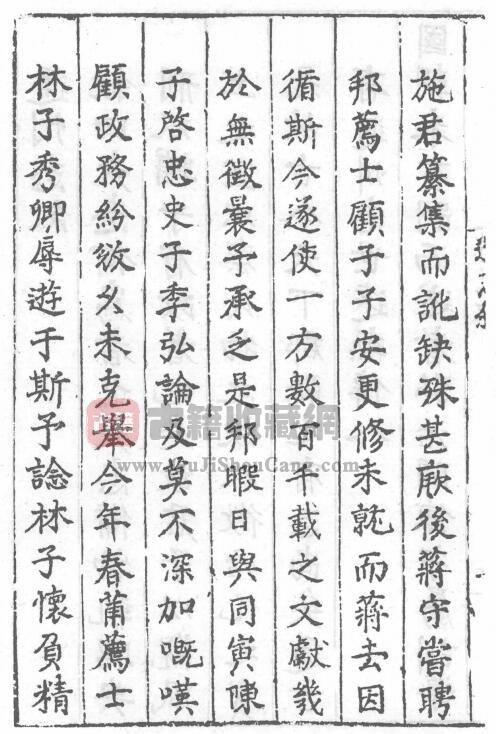 施君纂集而訛缺殊甚厥後蔣守嘗聘
邦薦士顧子子安更修未就而蔣去因
循斯今遂使一方數百千載之文獻幾
於無徵曩予承乏是邦暇日與同寅陳
子啓忠史子季弘論及莫不深加嘅嘆
顧政務紛繁久未克舉今年春莆薦士
林子秀卿辱遊于斯予諗林子懷負精
古籍收藏網
www.GuJiShouCang.com